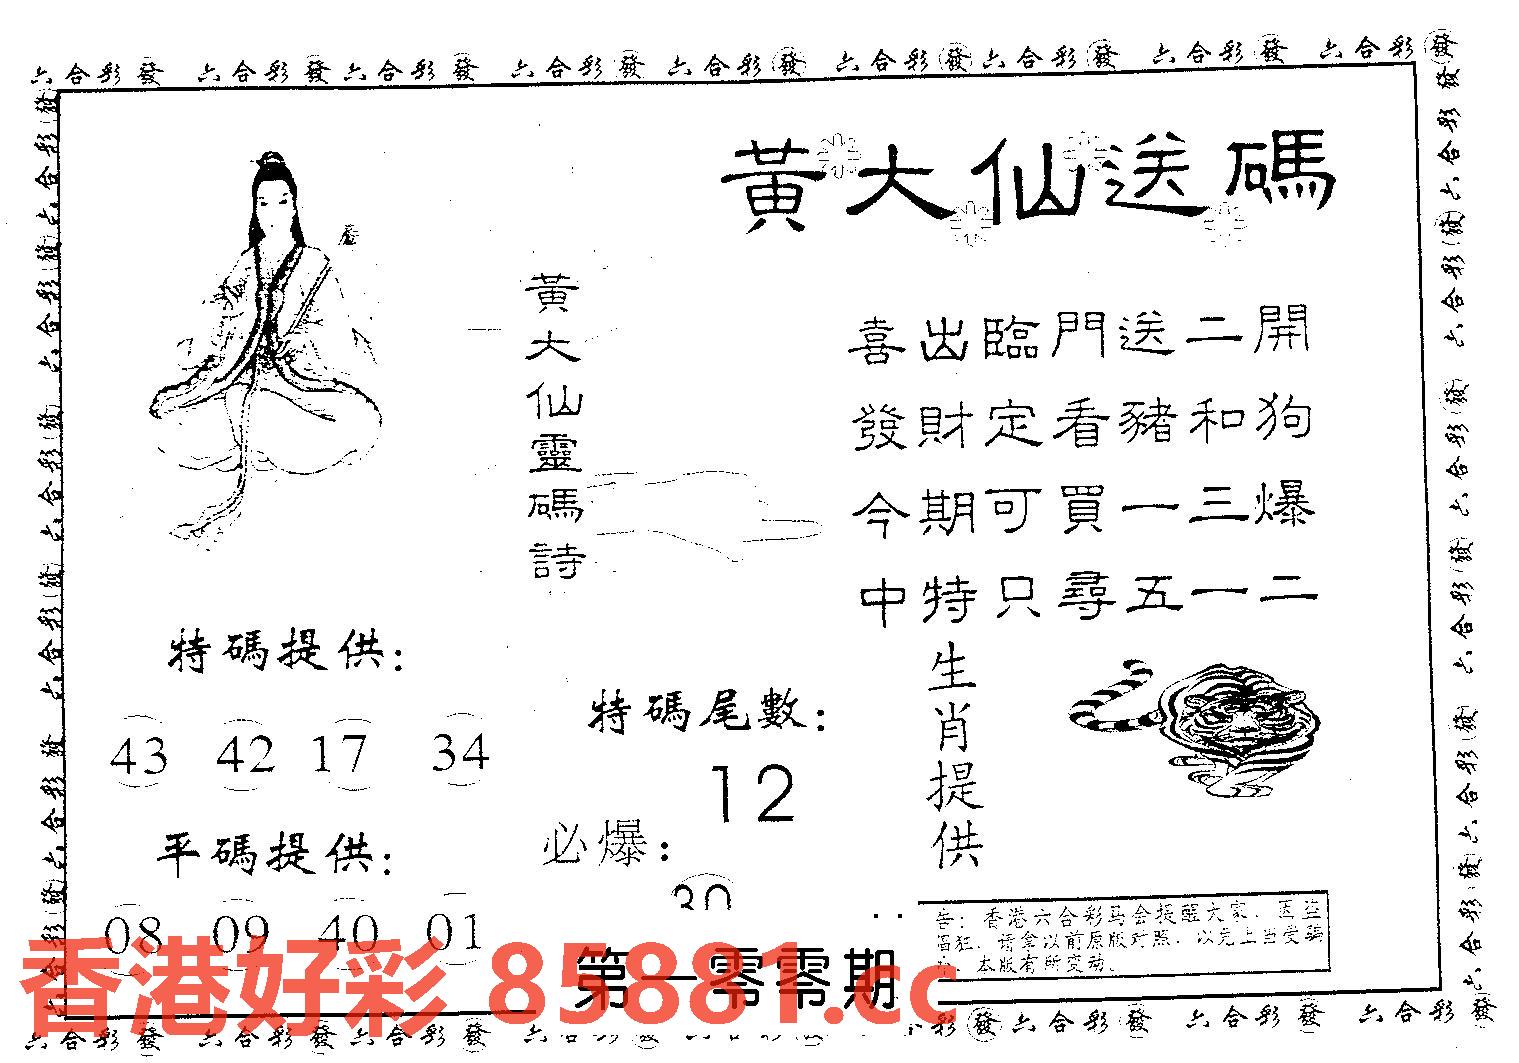 六合彩發 六合彩發 六合彩發 六合彩發 六合彩發 六合彩發 六合彩發 六合彩發 六合彩發
黃大仙送碼
黃大仙靈碼詩
喜出臨門送二開
發財定看豬和狗
今期可買一三爆
中特只尋五一二
特碼提供：
43 42 17 34
特碼尾數：
12
生肖提供
平碼提供：
08 09 40 01
必爆：
30
告：香港六合彩马会提醒大家，因盗
猖狂，请拿以前原版对照，以免上当受骗
本版有所变动。
第一零零期
香港好彩 85881.cc
六合彩發 六合彩發 六合彩發 六合彩發
彩發 六合彩發 六合彩發 六合彩發